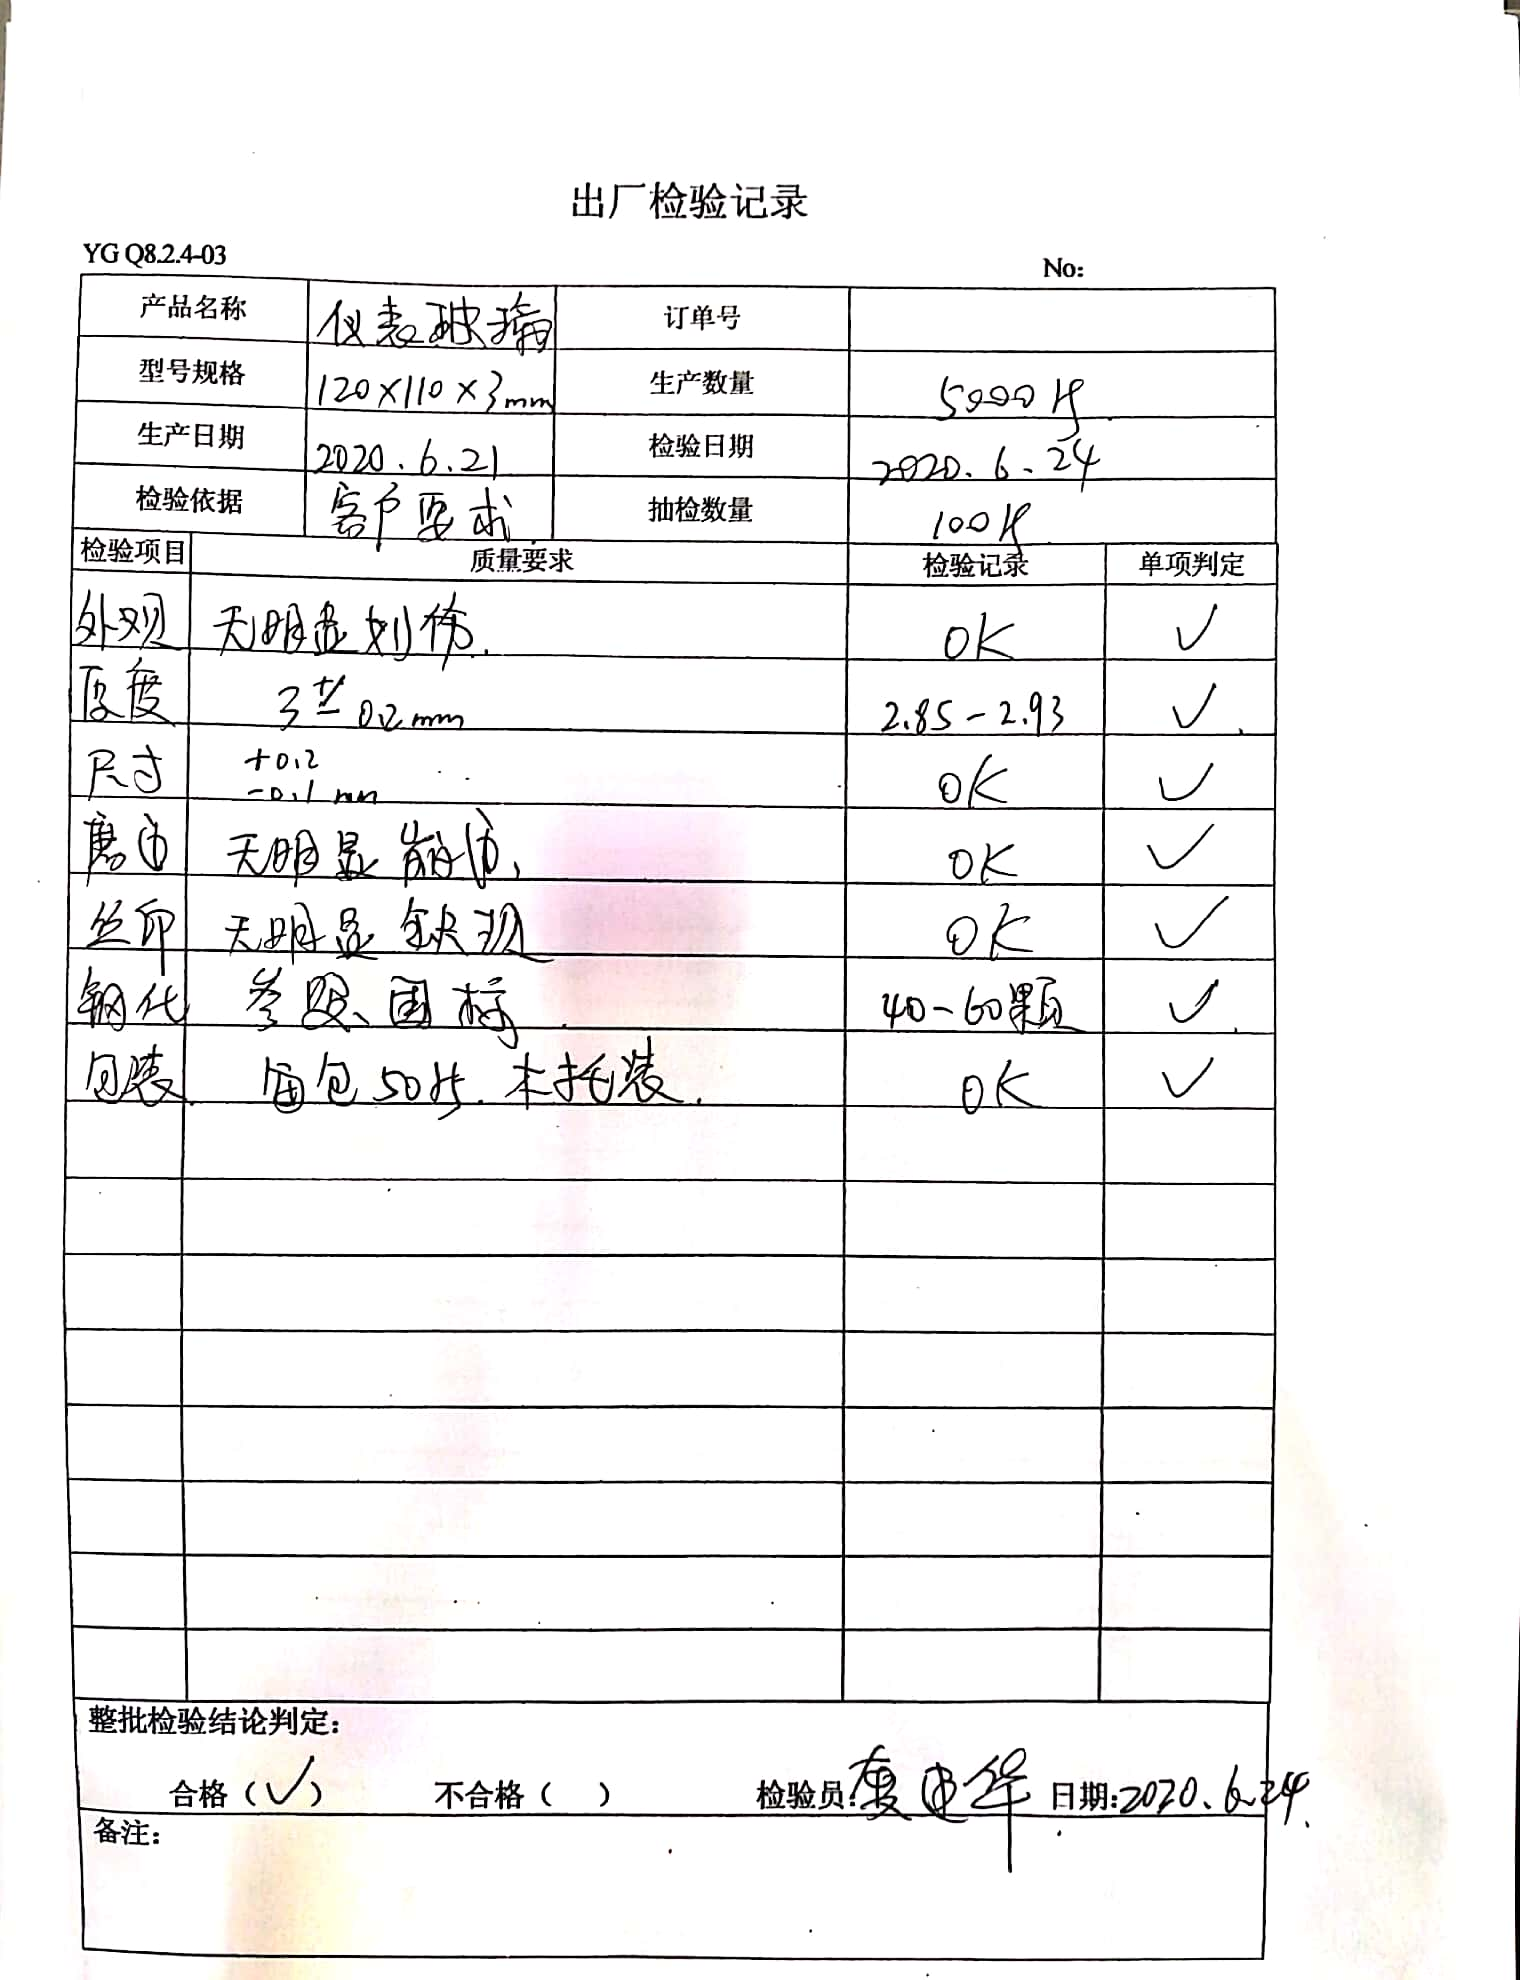 出厂检验记录
YG Q8.2.4-03
No:
产品名称 仪表玻璃 订单号
型号规格 120×110×3mm 生产数量 5000片
生产日期 2020.6.21 检验日期 2020.6.24
检验依据 客户要求 抽检数量 100片
检验项目 质量要求 检验记录 单项判定
外观 无明显划伤. OK ✓
厚度 3±0.2mm 2.85-2.93 ✓
尺寸 +0.2 -0.1mm OK ✓
磨边 无明显崩边, OK ✓
丝印 无明显缺现 OK ✓
钢化 参照国标 40-60颗 ✓
包装 包50片. 木托装. OK ✓
整批检验结论判定:
合格(✓) 不合格( ) 检验员: 日期:2020.6.24.
备注: